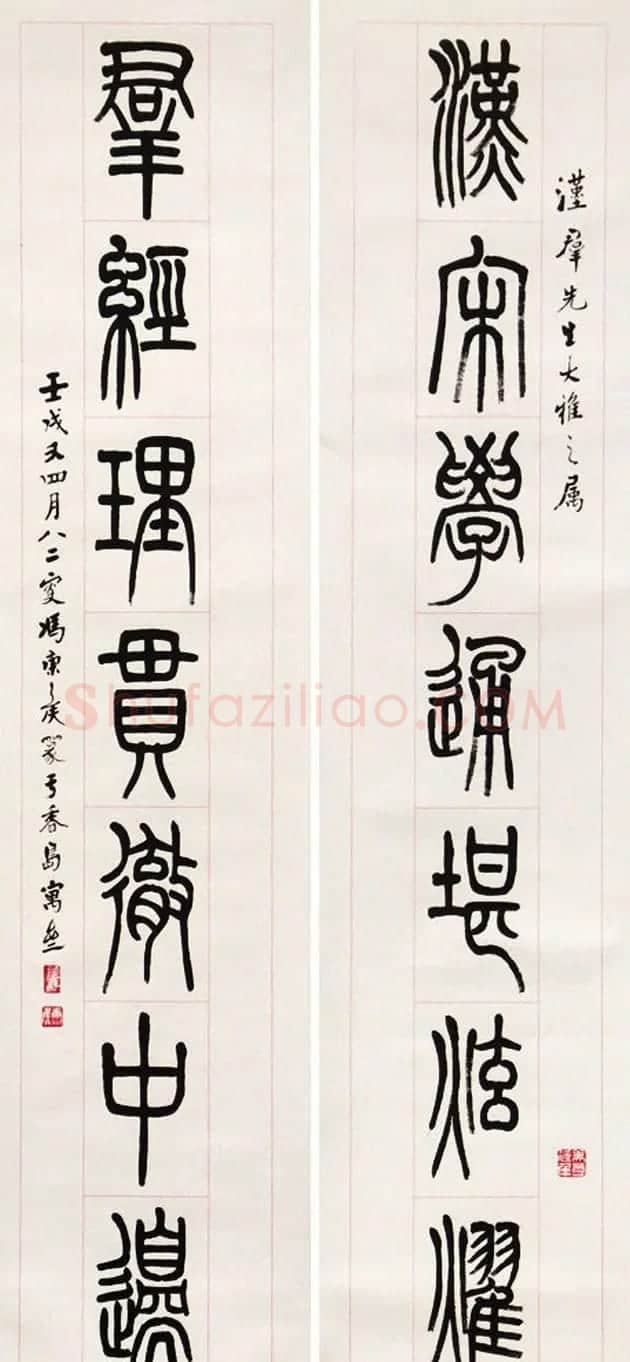 漢宋學通堪炫燿
漢羣先生大雅之属
羣經理貫徹中邊
壬戌又四月八二叟馮康矦篆于香島寓廬
Shufaziliao.COM